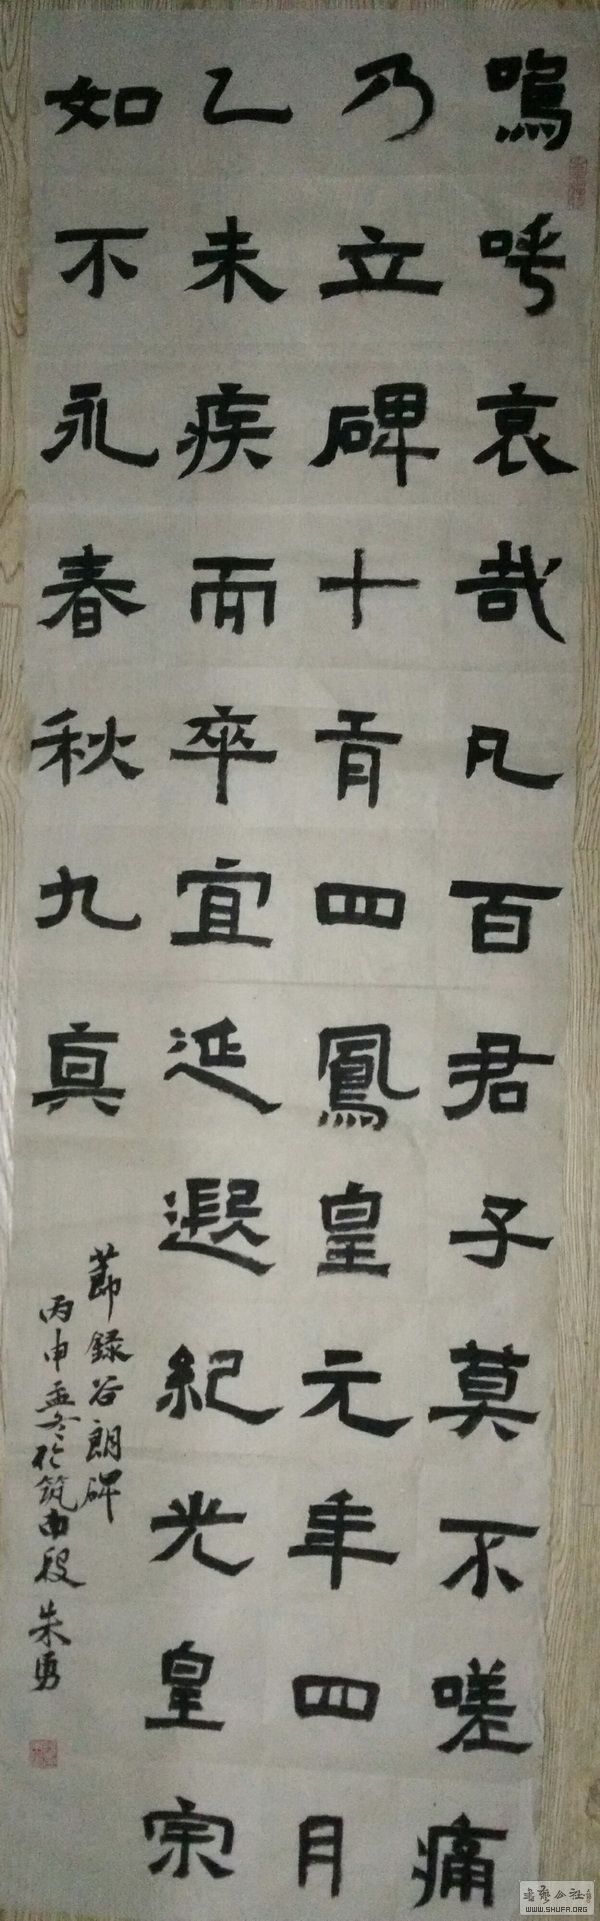 嗚呼哀哉凡百君子莫不嗟痛
乃立碑十有四鳳皇元年四月
乙未疾而卒宜延遐紀光皇宗
如不永春秋九真
節録谷朗碑
丙申孟冬於筑南段朱勇
书艺公社
WWW.SHUFA.ORG